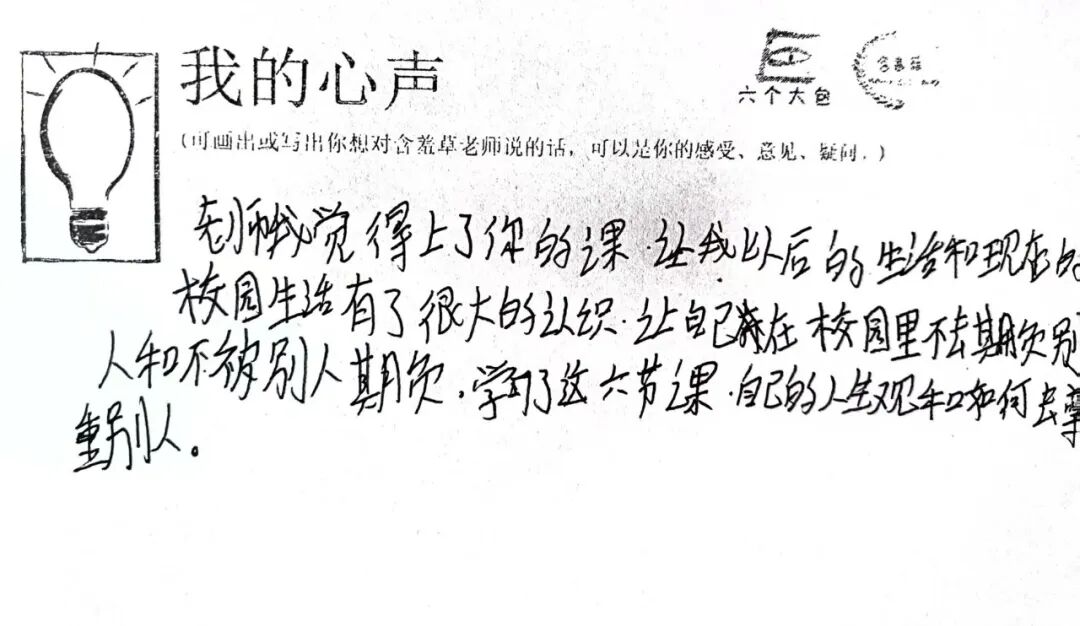 我的心声
六个大包
含羞草
(可画出或写出你想对含羞草老师说的话，可以是你的感受、意见、疑问。)
老师我觉得上了你的课.让我以后的生活和现在的
校园生活有了很大的认识.让自己在校园里不去期负别
人和不被别人期负.学习了这六节课.自己的人生观和如何去
重别人。